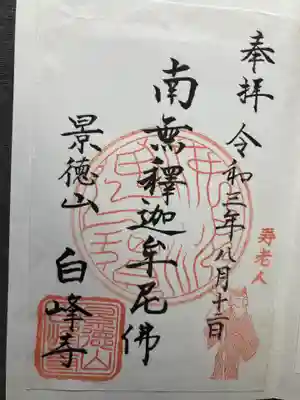 奉拝 令和三年八月十二日
寿老人
南無釋迦牟尼佛
景德山 白峰寺